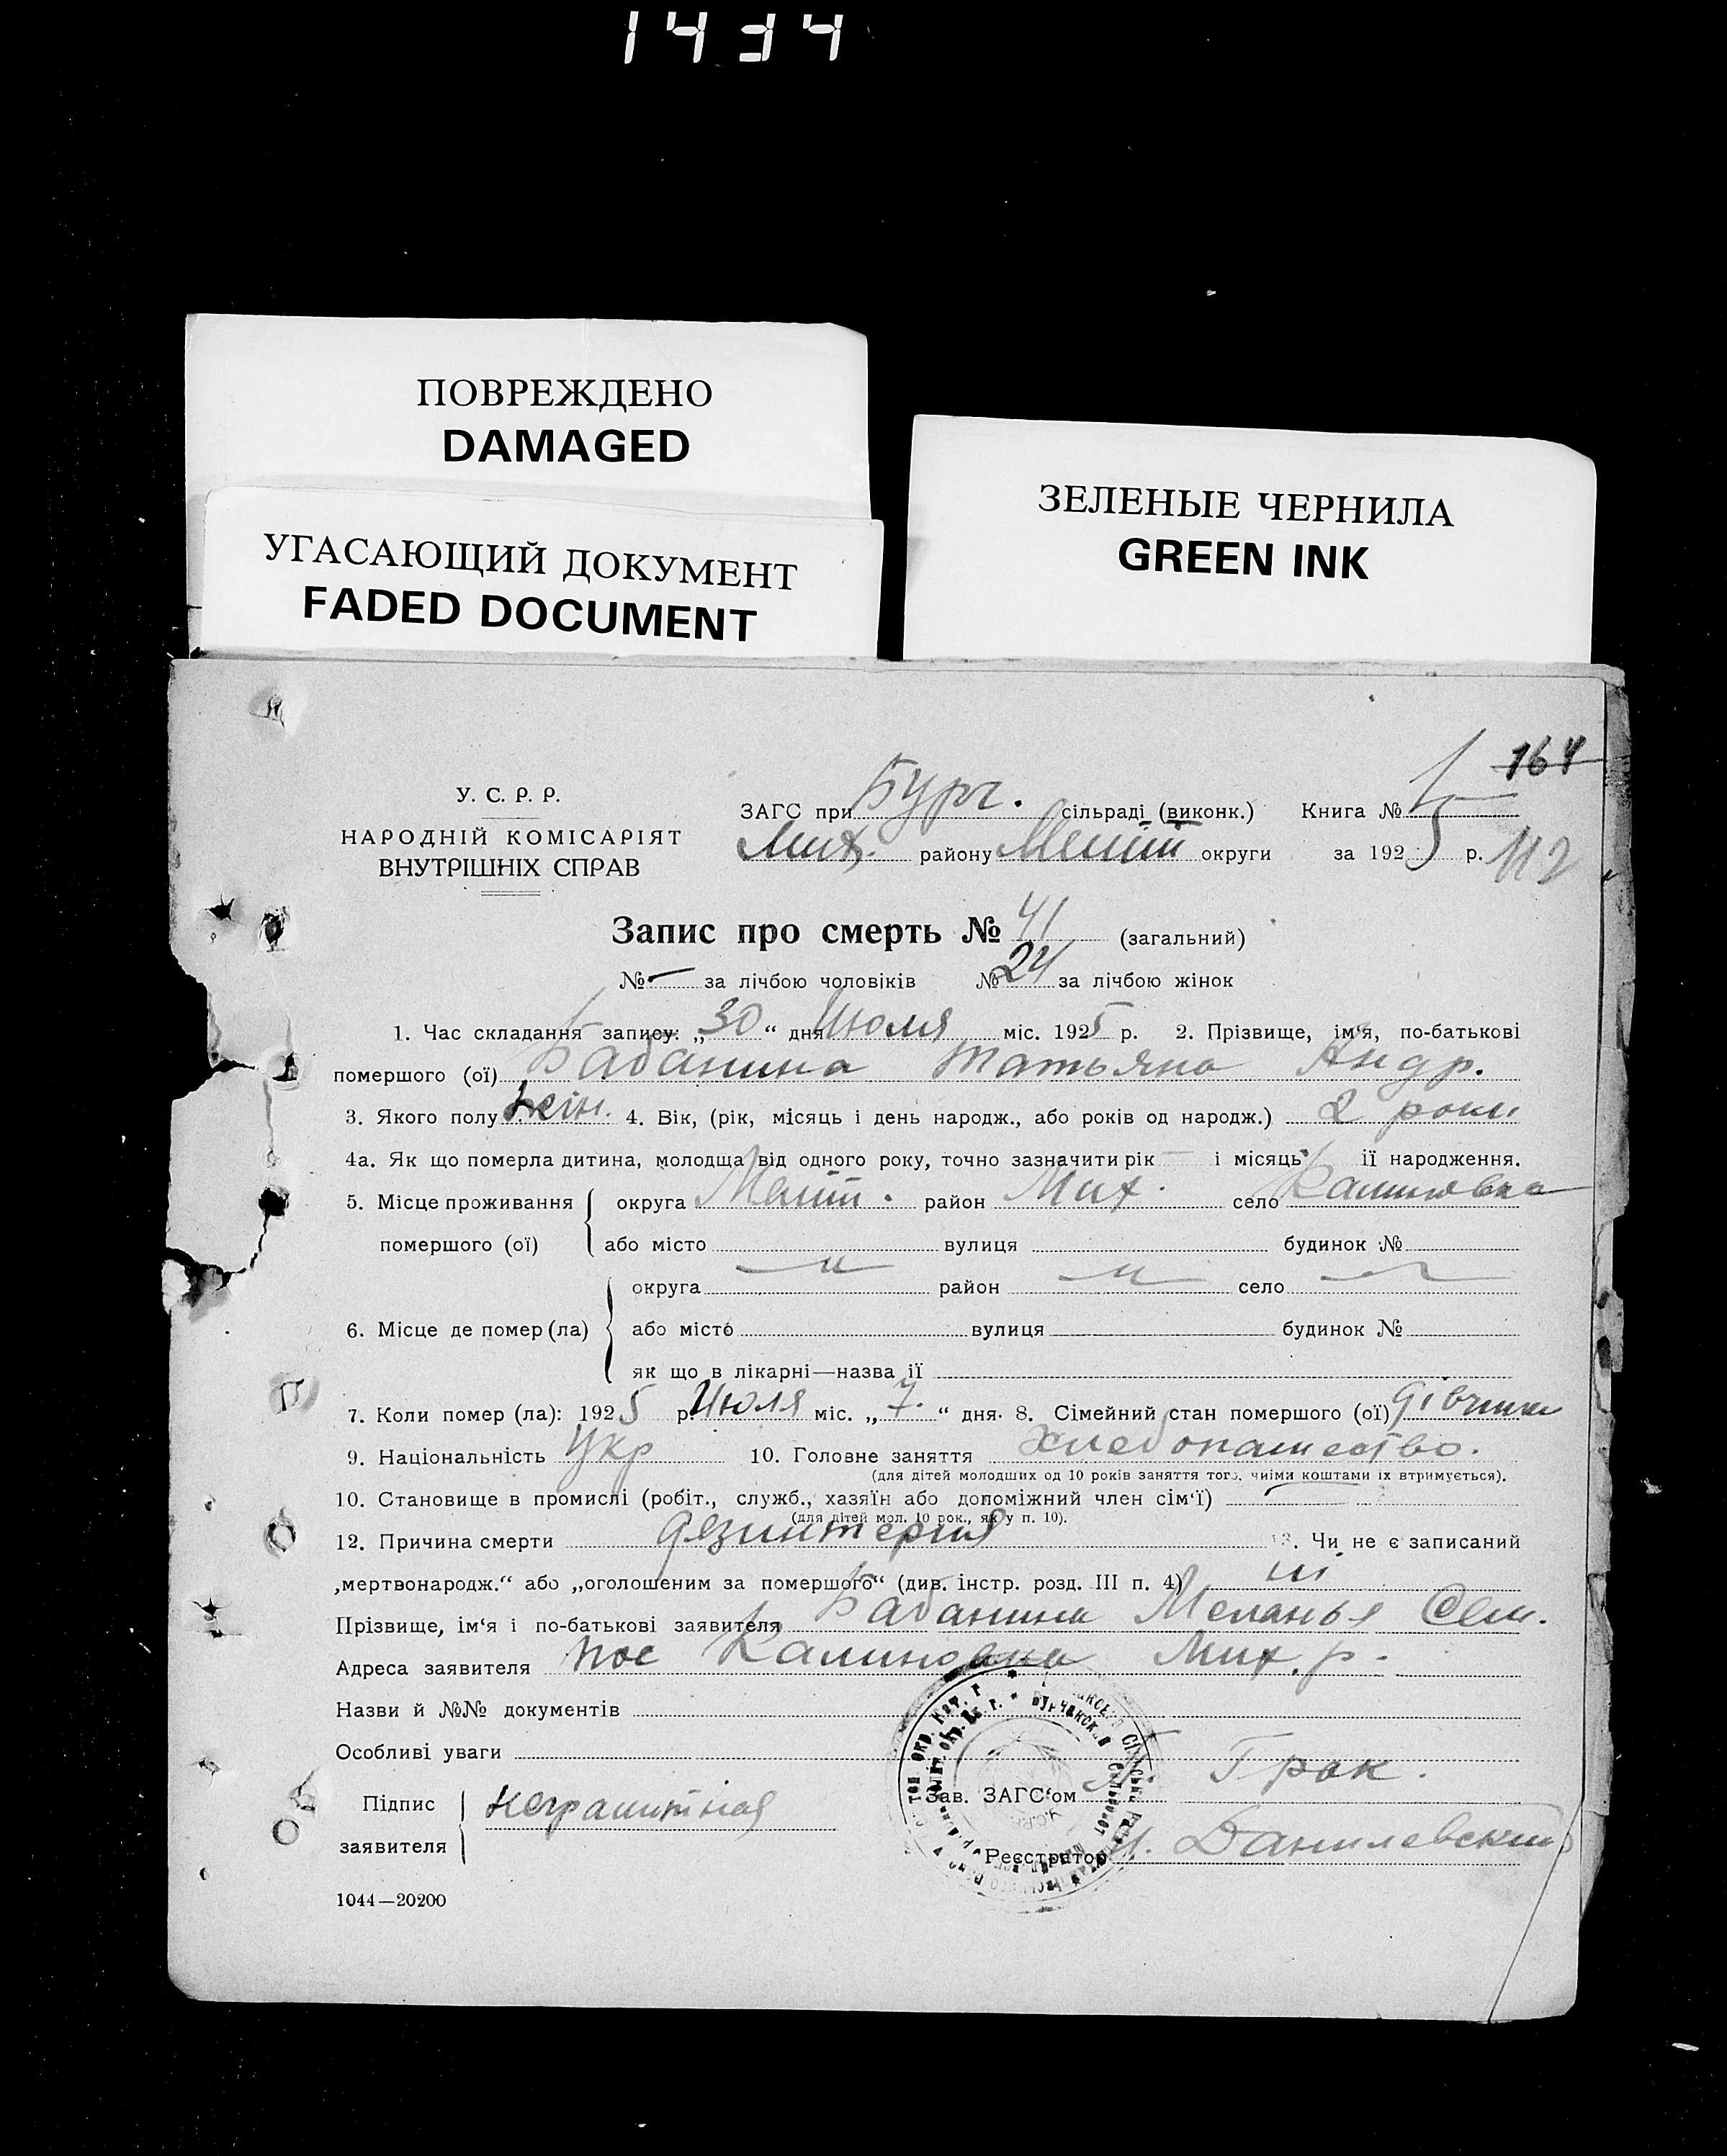 1434
ПОВРЕЖДЕНО
DAMAGED
УГАСАЮЩИЙ ДОКУМЕНТ
FADED DOCUMENT
ЗЕЛЕНЫЕ ЧЕРНИЛА
GREEN INK
164
У. С. Р. Р.
НАРОДНІЙ КОМІСАРІЯТ
ВНУТРІШНІХ СПРАВ
ЗАГС при Бурч. сільраді (виконк.) Книга № 1
Мих. району Меліт округи за 1925 р. 112
Запис про смерть № 41 (загальний)
№ — за лічбою чоловіків № 24 за лічбою жінок
1. Час складання запису: „30“ дня Июля міс. 1925 р. 2. Прізвище, ім'я, по-батькові
помершого (ої) Бабанина Татьяна Андр.
3. Якого полу жін. 4. Вік, (рік, місяць і день народж., або років од народж.) 2 роки
4а. Як що померла дитина, молодща від одного року, точно зазначити рік — і місяць її народження.
5. Місце проживання округа Меліт. район Мих. село Калиновка
помершого (ої) або місто вулиця будинок №
округа —„— район —„— село —„—
6. Місце де помер (ла) або місто вулиця будинок №
як що в лікарні—назва її
7. Коли помер (ла): 1925 р. Июля міс. „7.“ дня. 8. Сімейний стан помершого (ої) дівчина
9. Національність Укр 10. Головне заняття Хлебопашество.
(для дітей молодших од 10 років заняття того, чиїми коштами їх втримується).
10. Становище в промислі (робіт., служб., хазяїн або допоміжний член сім'ї) —
(для дітей мол. 10 рок., як у п. 10).
12. Причина смерти дизинтерия 13. Чи не є записаний
„мертвонародж.“ або „оголошеним за померщого“ (див. інстр. розд. III п. 4) ні
Прізвище, ім'я і по-батькові заявителя Бабанина Меланья Сем.
Адреса заявителя пос Калиновка Мих. р.
Назви й №№ документів
Особливі уваги
Підпис неграмотная Зав. ЗАГС'ом Грак.
заявителя Реєстратор Данилевский
1044—20200